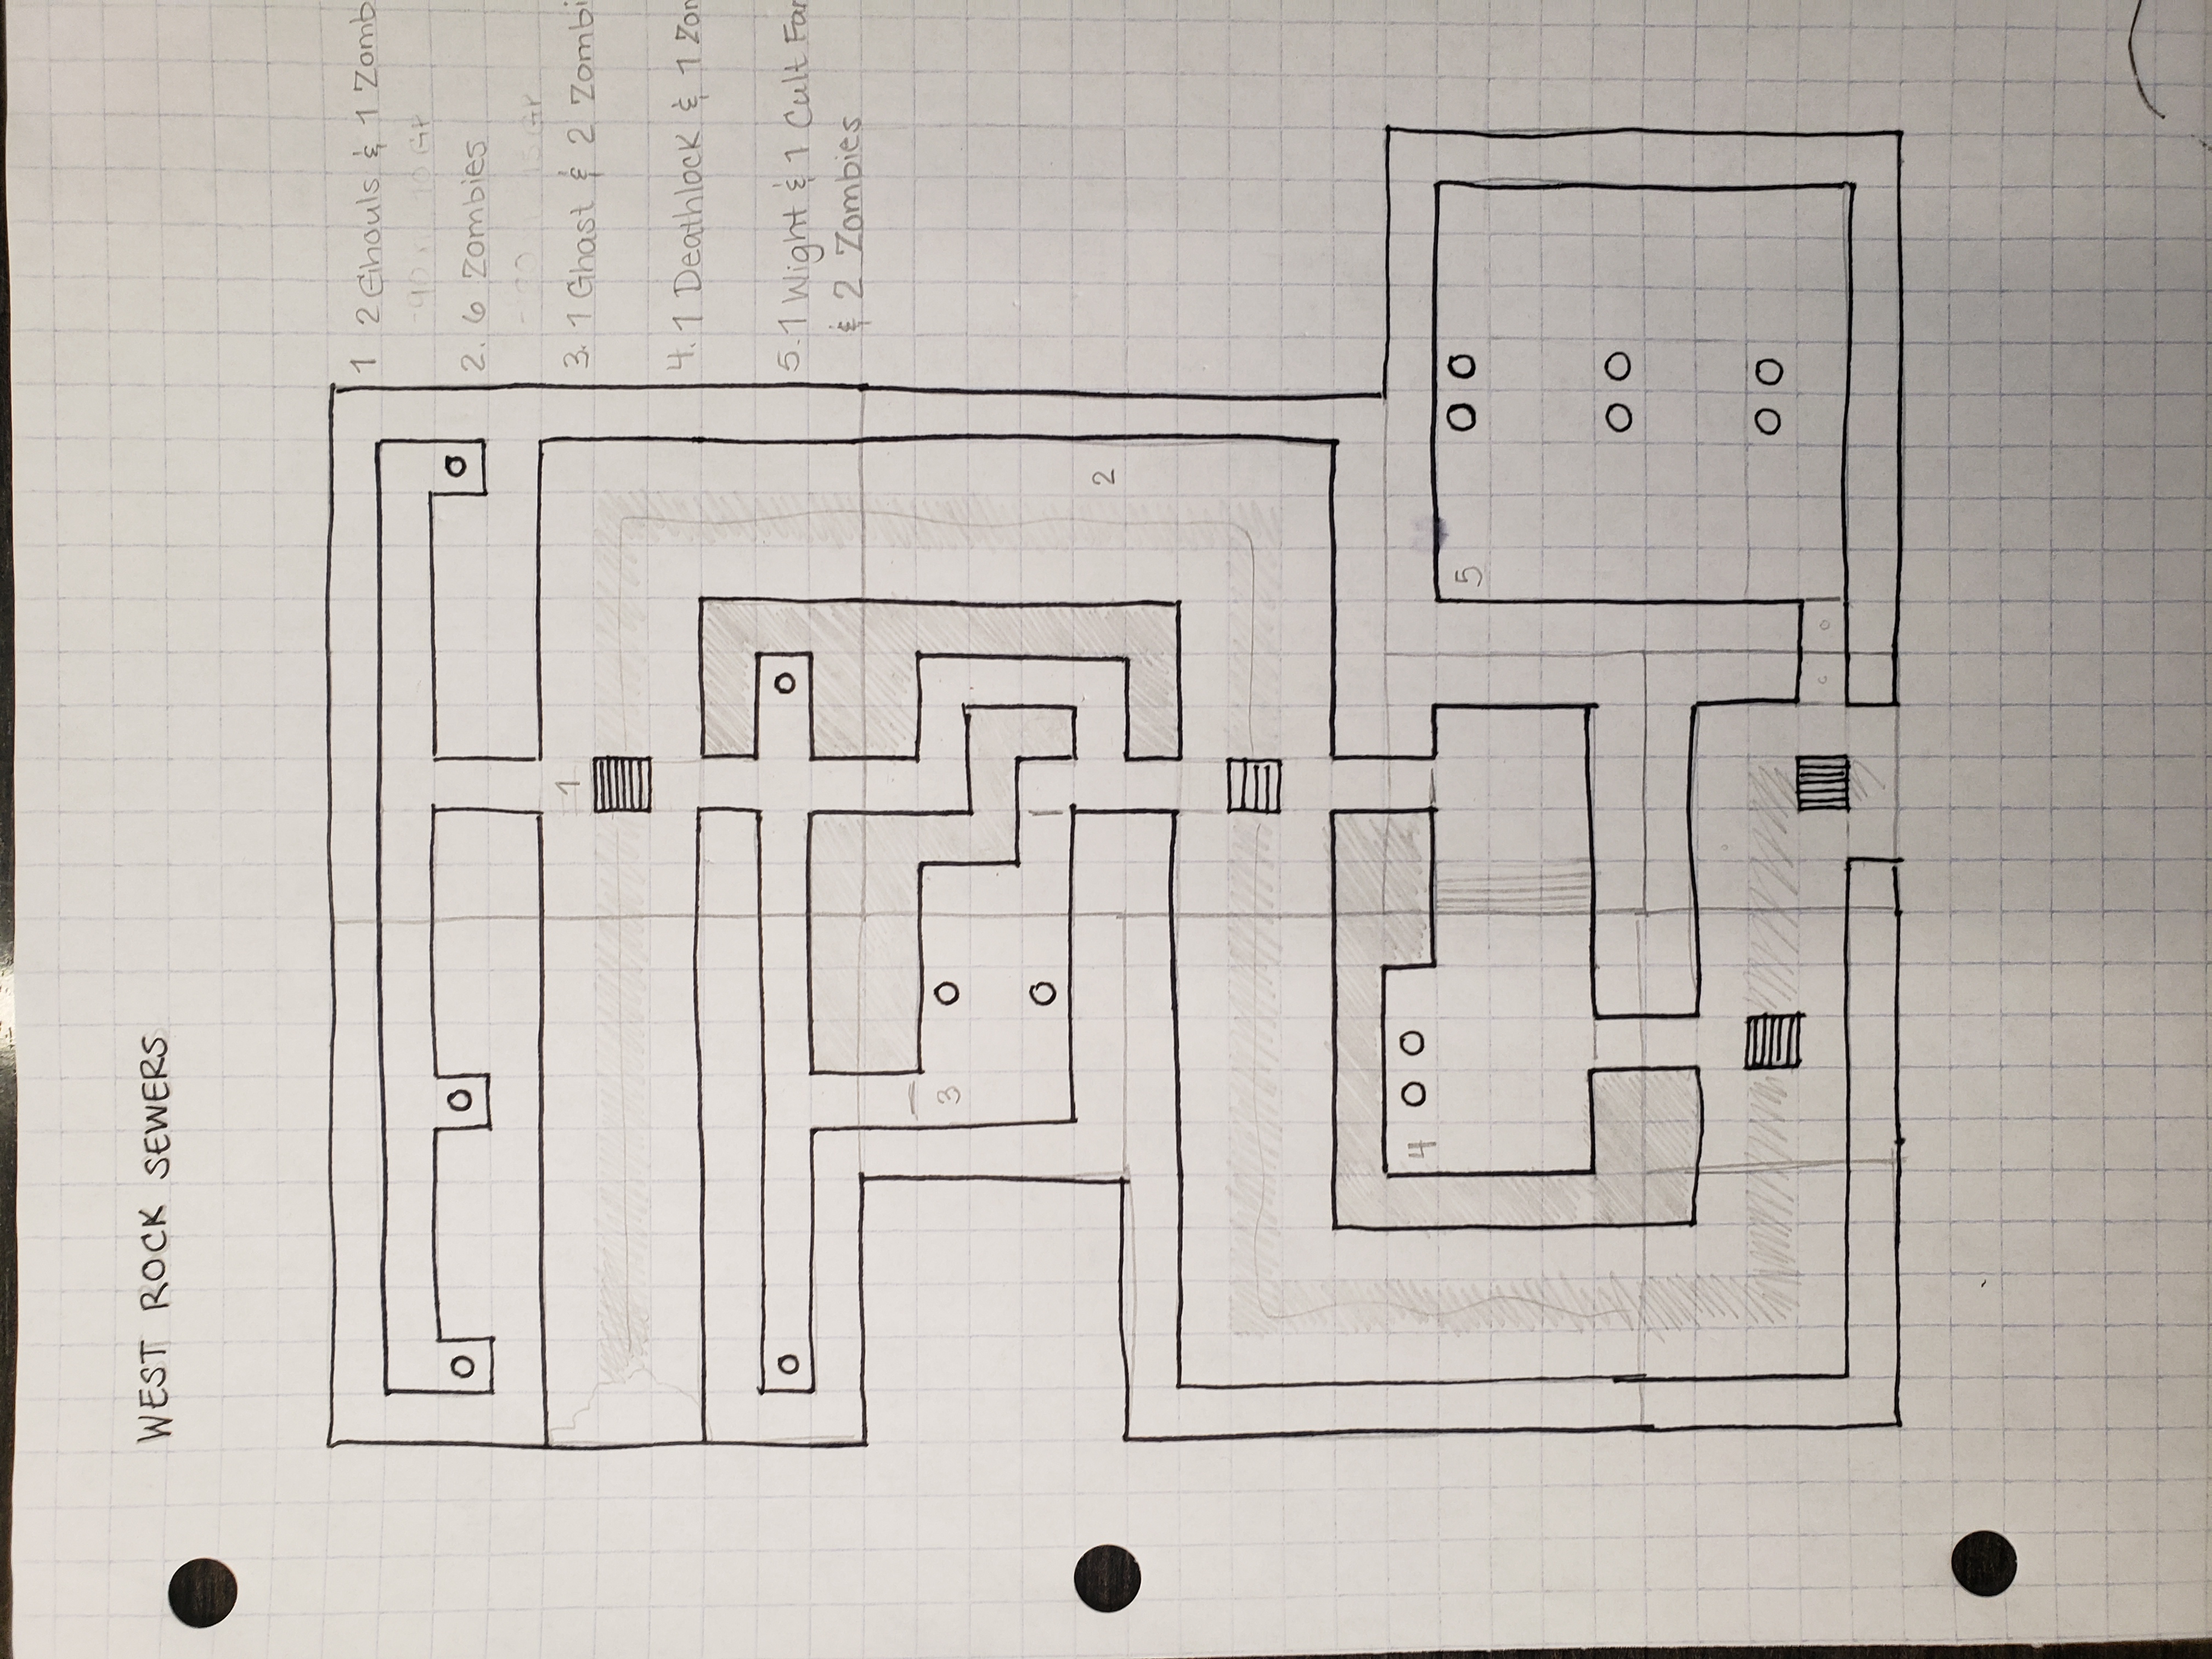 WEST ROCK SEWERS
1 2 Ghouls & 1 Zomb
2. 6 Zombies
3. 1 Ghast & 2 Zombi
4. 1 Deathlock & 1 Zom
5. 1 Wight & 1 Cult Fan
& 2 Zombies
1
3
2
4
5